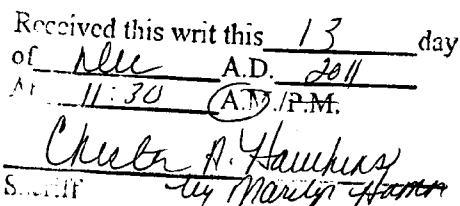 Received this writ this 13 day
of Dec A.D. 2011
At 11:30 A.M./P.M.
Chester A. Hawkins
Sheriff by Marilyn Hamm